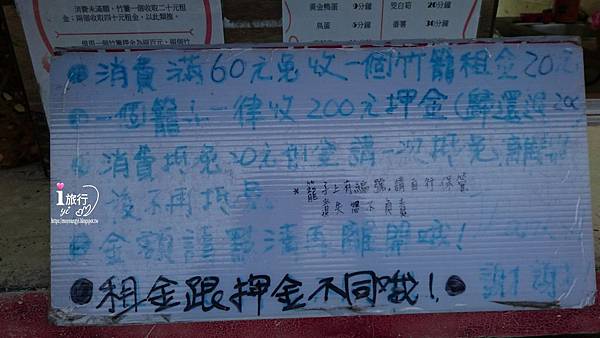 消費未滿額，竹籠一個收取二十元租
金；兩個收取四十元租金，以此類推。
黃金鴨蛋 9分鐘
鳥蛋
茭白筍 20分鐘
番薯 30分鐘
●消費滿60元免收一個竹籠租金20元
●一個籠子一律收200元押金(歸還退200
消費抵免20元個堂請一次抵免,離
後不再抵免
*籠子上有編號,請自行保管
遺失恕不負責
●金額請點清再離開哦!
●租金跟押金不同哦!●
謝!謝!
i旅行
yi
http://mayoungyi.pixnet.net